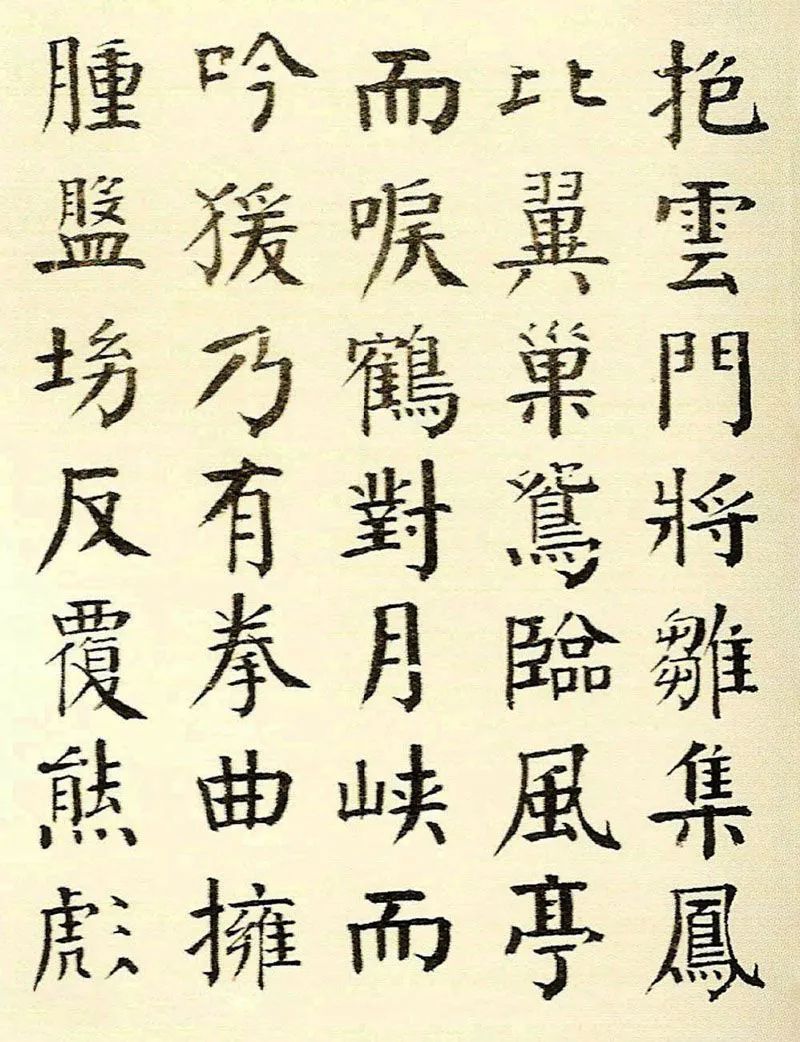 抱雲門將雛集鳳
比翼巢鴛臨風亭
而唳鶴對月峡而
吟猨乃有拳曲擁
腫盤坳反覆熊彪